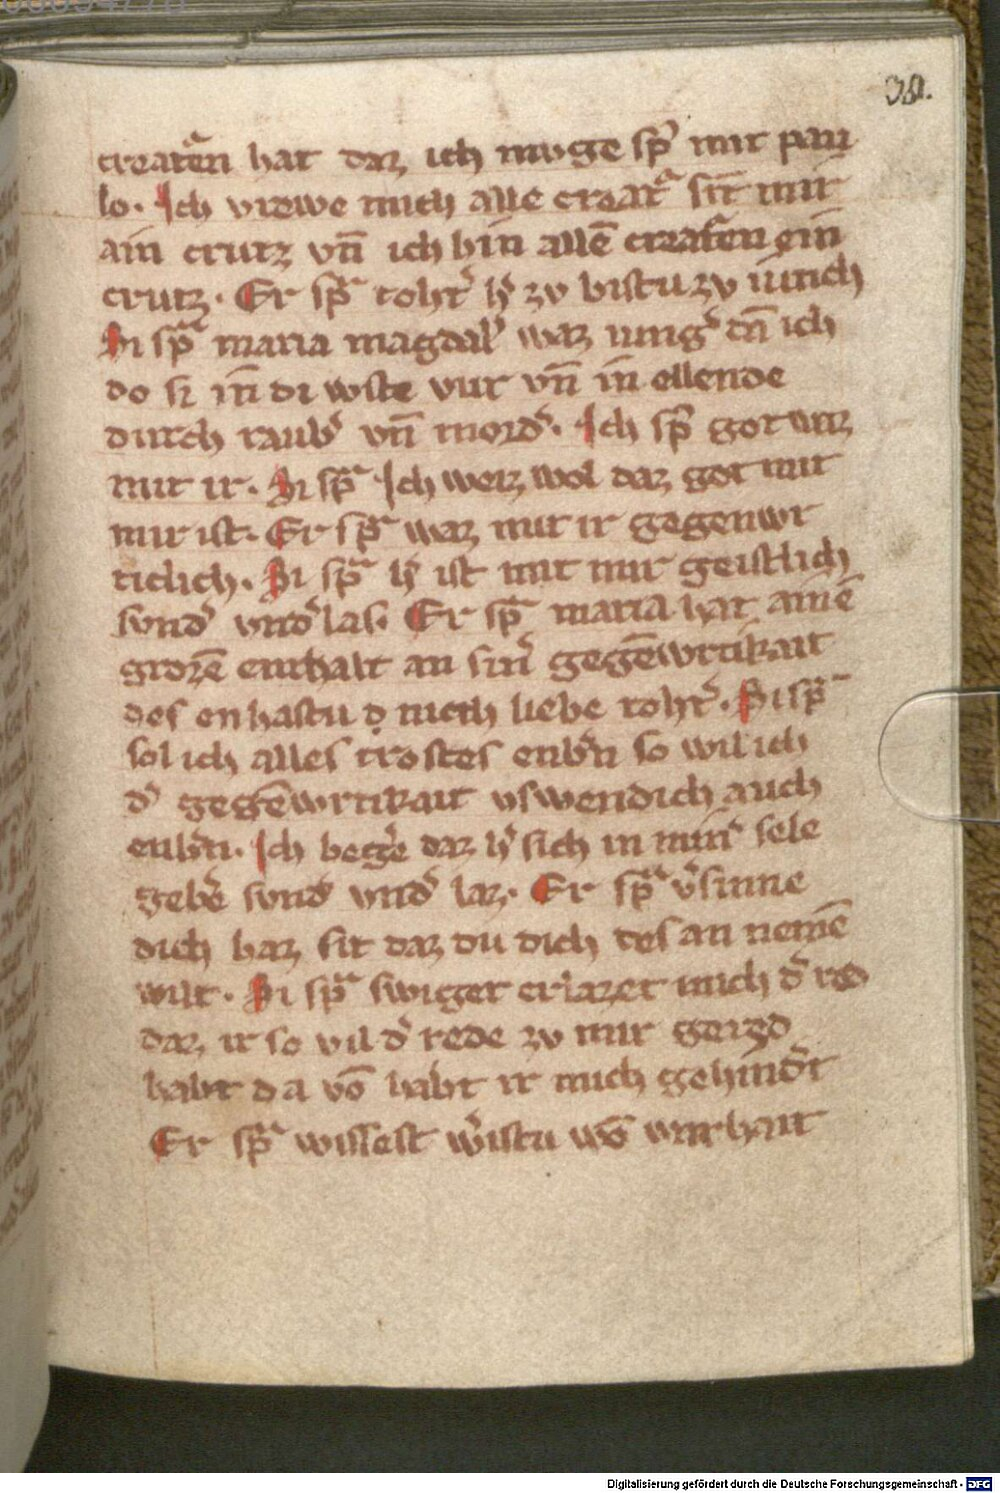 38.
creatēn hat daz ich muge sp̄r mit pau
lo. Ich vrewe mich alle creatꝛ̄ sīt mir
ain crutz vn̄ ich bin allē creatꝛ̄en ein
crutz. Er spᵃ tohtˀ h̓ zv bistu zv iunch
Si spᵃ maria magdalˀ waz iungˀ dn̄ ich
do si in̄ di wste vur vn̄ in̄ ellende
durch raubˀ vn̄ mordˀ. Ich spˀ got waz
mit ir. Si spᵃ Ich weiz wol daz got mit
mir ist. Er spᵃ waz mit ir gegenwr
ticlich. Si spᵃ h̓ ist mit mir geistlich
sundˀ vndˀlas. Er spᵃ maria hat ainē
grozē enthalt an sinˀ gegēwrtikait
des enhastu ḍ nich liebe tohtˀ. Si spᵃ
sol ich alles trostes enbˀn so wil ich
dˀ gegēwrtikait vswendich auch
enbˀn. Ich begˀe daz h̓ sich in minˀ sele
gebˀe sundˀ vndˀ laz. Er spᵃ vˀsinne
dich baz sit daz du dich des an nemē
wilt. Si spᵃ swiget erlazet mich dˀ red
daz ir so vil dˀ rede zv mir gered
habt da vō habt ir mich gehindˀt
Er spᵃ wissest wˀistu wō warhait
Digitalisierung gefördert durch die Deutsche Forschungsgemeinschaft - DFG